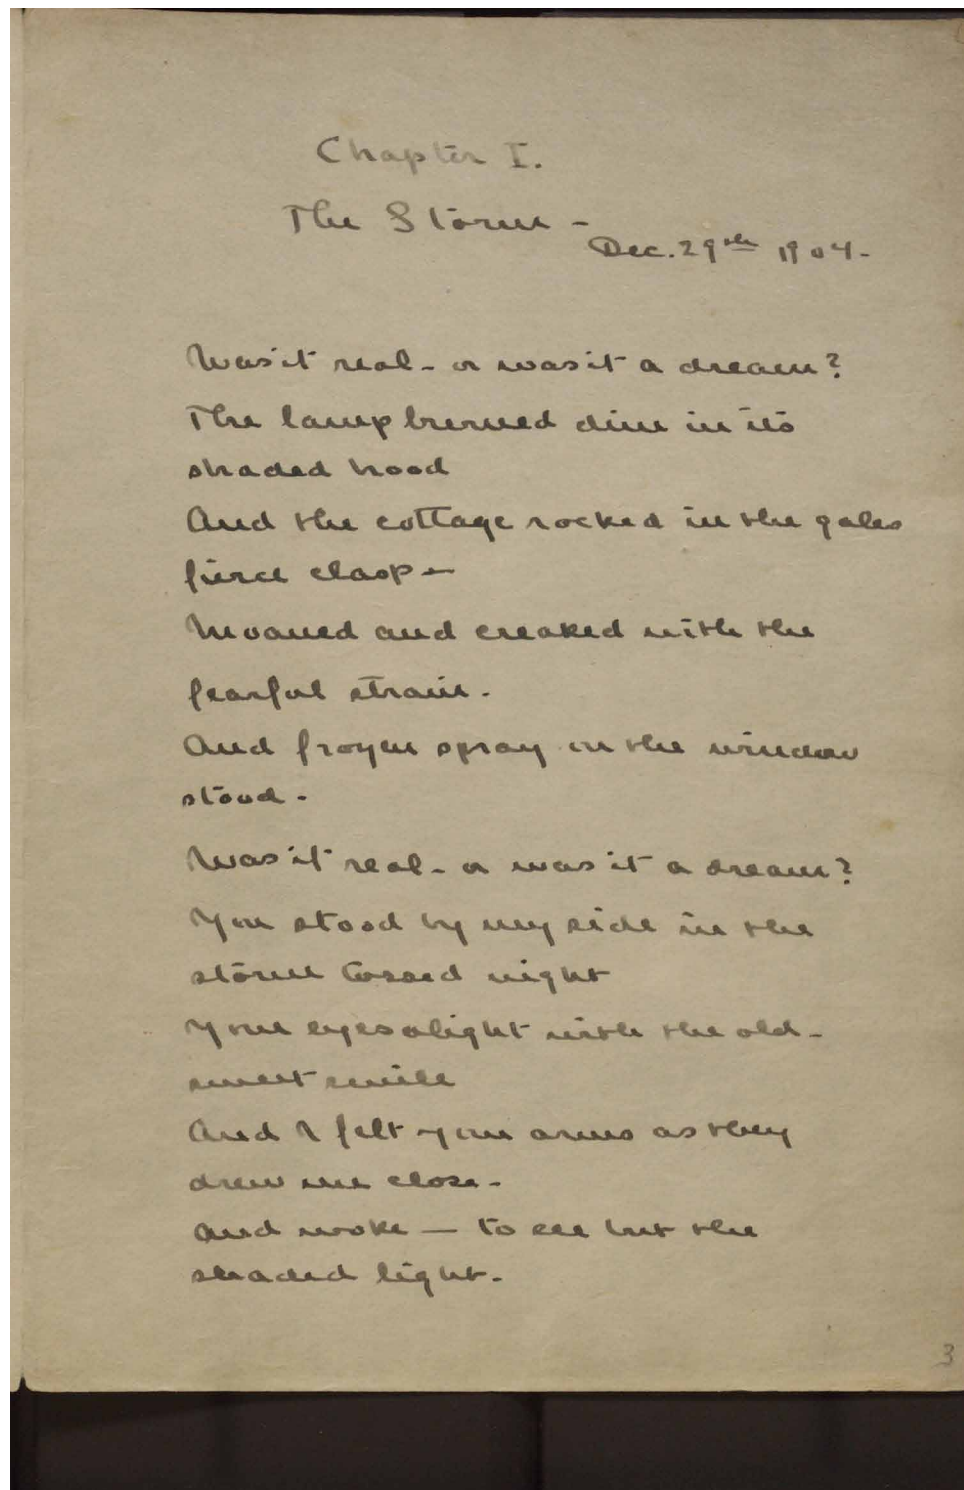 Chapter I.
The Storm -
Dec. 29th 1904 -
Was it real - or was it a dream?
The lamp burned dim in its
shaded hood
And the cottage rocked in the gales
fierce clasp -
Moaned and creaked with the
fearful strain.
And frozen spray on the window
stood -
Was it real - or was it a dream?
You stood by my side in the
storm tossed night
Your eyes alight with the old -
sweet smile
And I felt your arms as they
drew me close -
And woke — to see but the
shaded light.
3